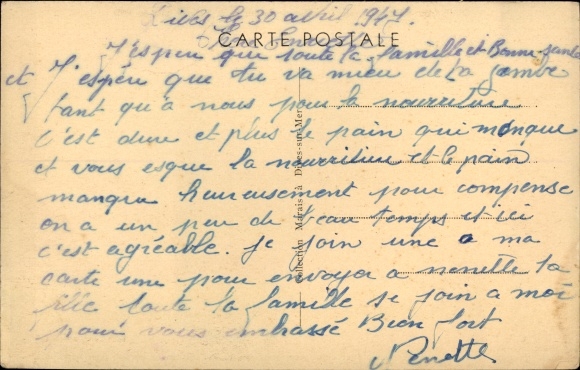 Dives le 30 avril 1947.
CARTE POSTALE
J'espere que toute la famille et Bonne santé
et J'espére que tu va mieu de la jambe
tant qu'a nous pour la nourriture
c'est dure et plus le pain qui manque
et vous esque la nourriture et le pain
manque heureusement pour compense
on a un peu de beau temps et ici
c'est agréable. Je join une a ma
carte une pour envoyer a nenette ta
fille toute la famille se join a moi
pour vous embrassé Bien fort
Nenette
Collection Marais à Dives-sur-Mer